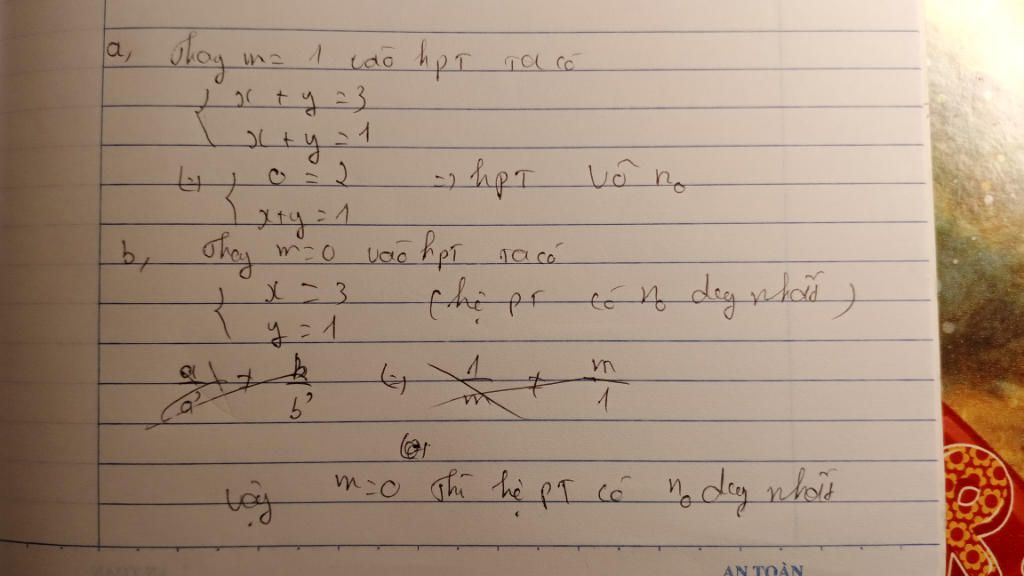 a, Thay m = 1 vào hpT ta có
x + y = 3
x + y = 1
(=) 0 = 2 => hpT Vô no
x+y = 1
b, Thay m=0 vào hpT ta có
x = 3 (hệ pT có no duy nhất)
y = 1
a/a' ≠ b/b' (=) 1/m ≠ m/1
Vậy m=0 thì hệ pT có no duy nhất
AN TOÀN